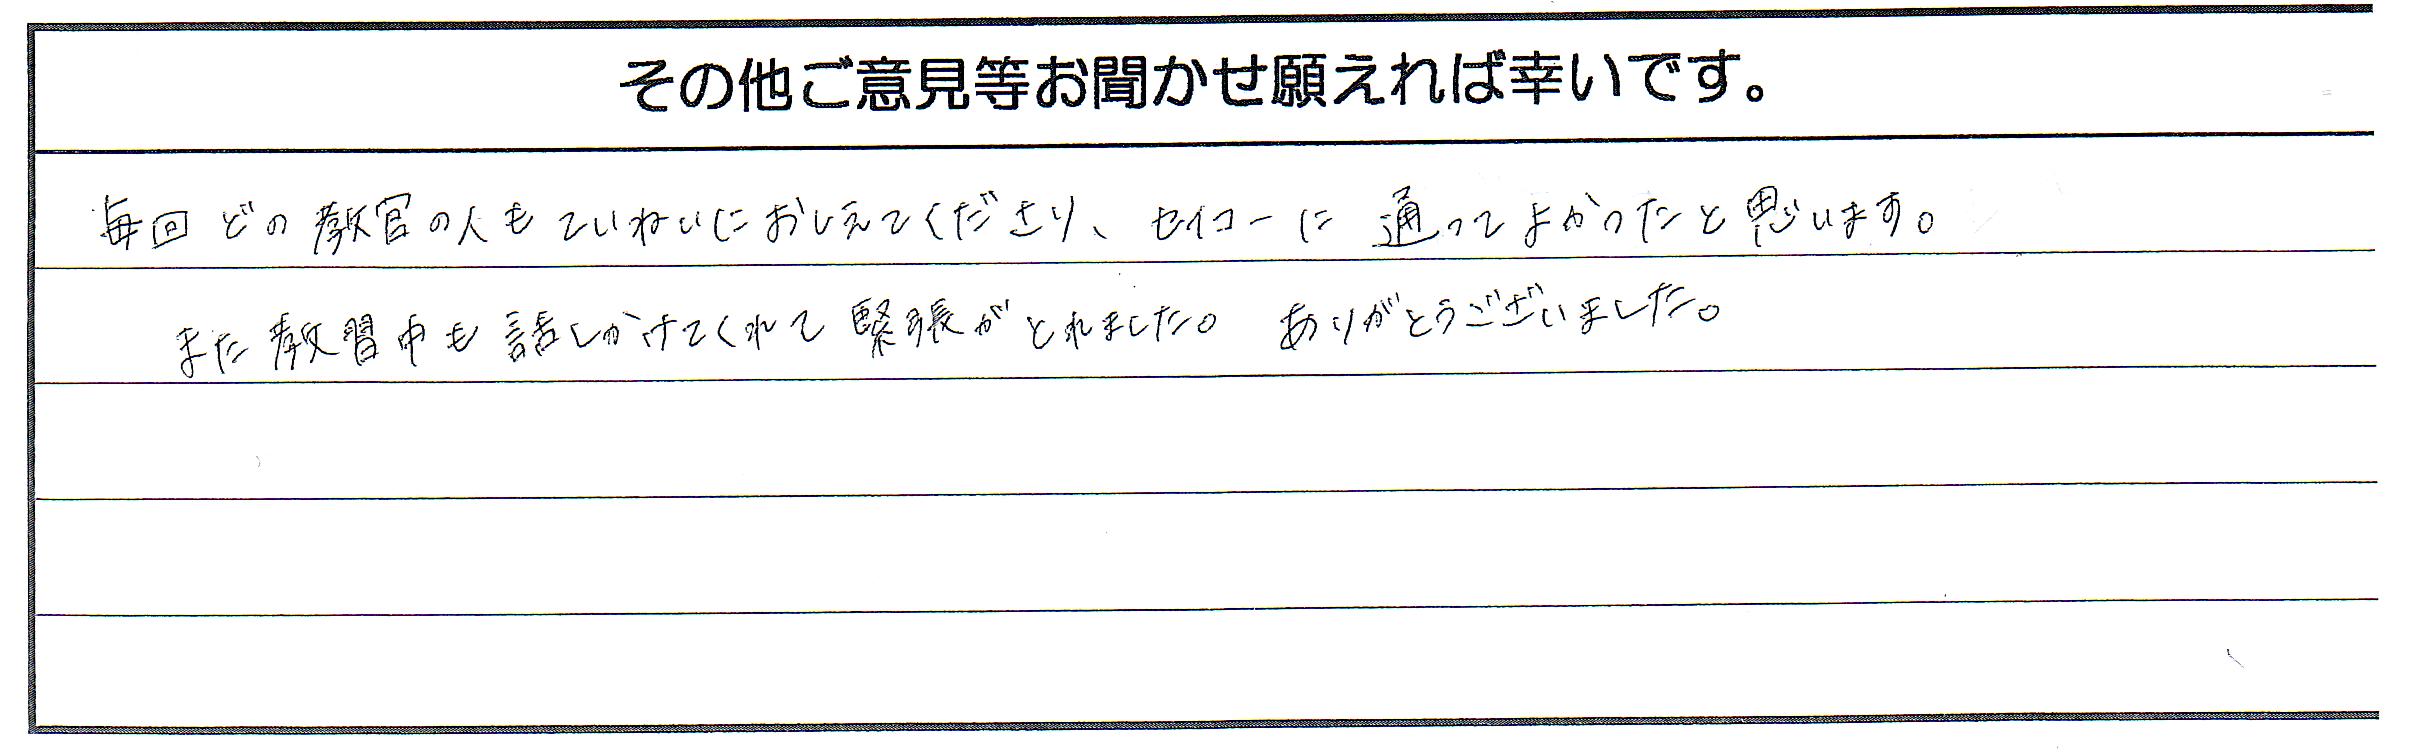 その他ご意見等お聞かせ願えれば幸いです。
毎回どの教官の人もていねいにおしえてくださり、セイコーに通ってよかったと思います。
また教習中も話しかけてくれて緊張がとれました。ありがとうございました。